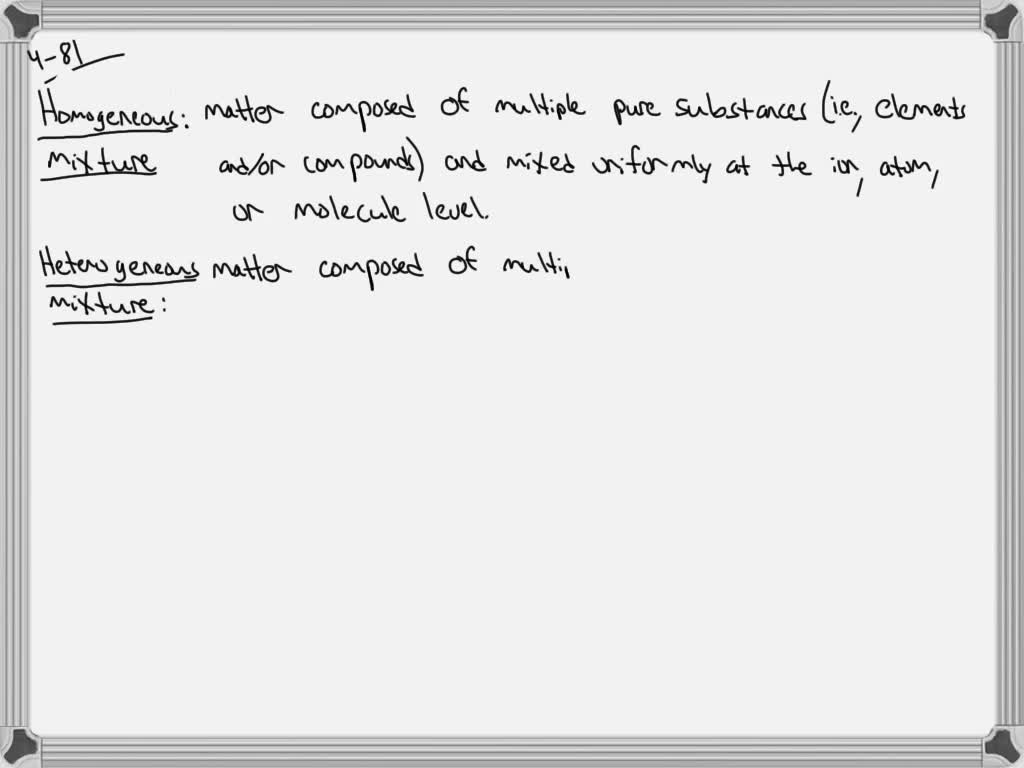 4-81
Homogeneous: matter composed of multiple pure substances (i.e., elements
mixture and/or compounds) and mixed uniformly at the ion, atom,
or molecule level.
Heterogeneous matter composed of multi
mixture: